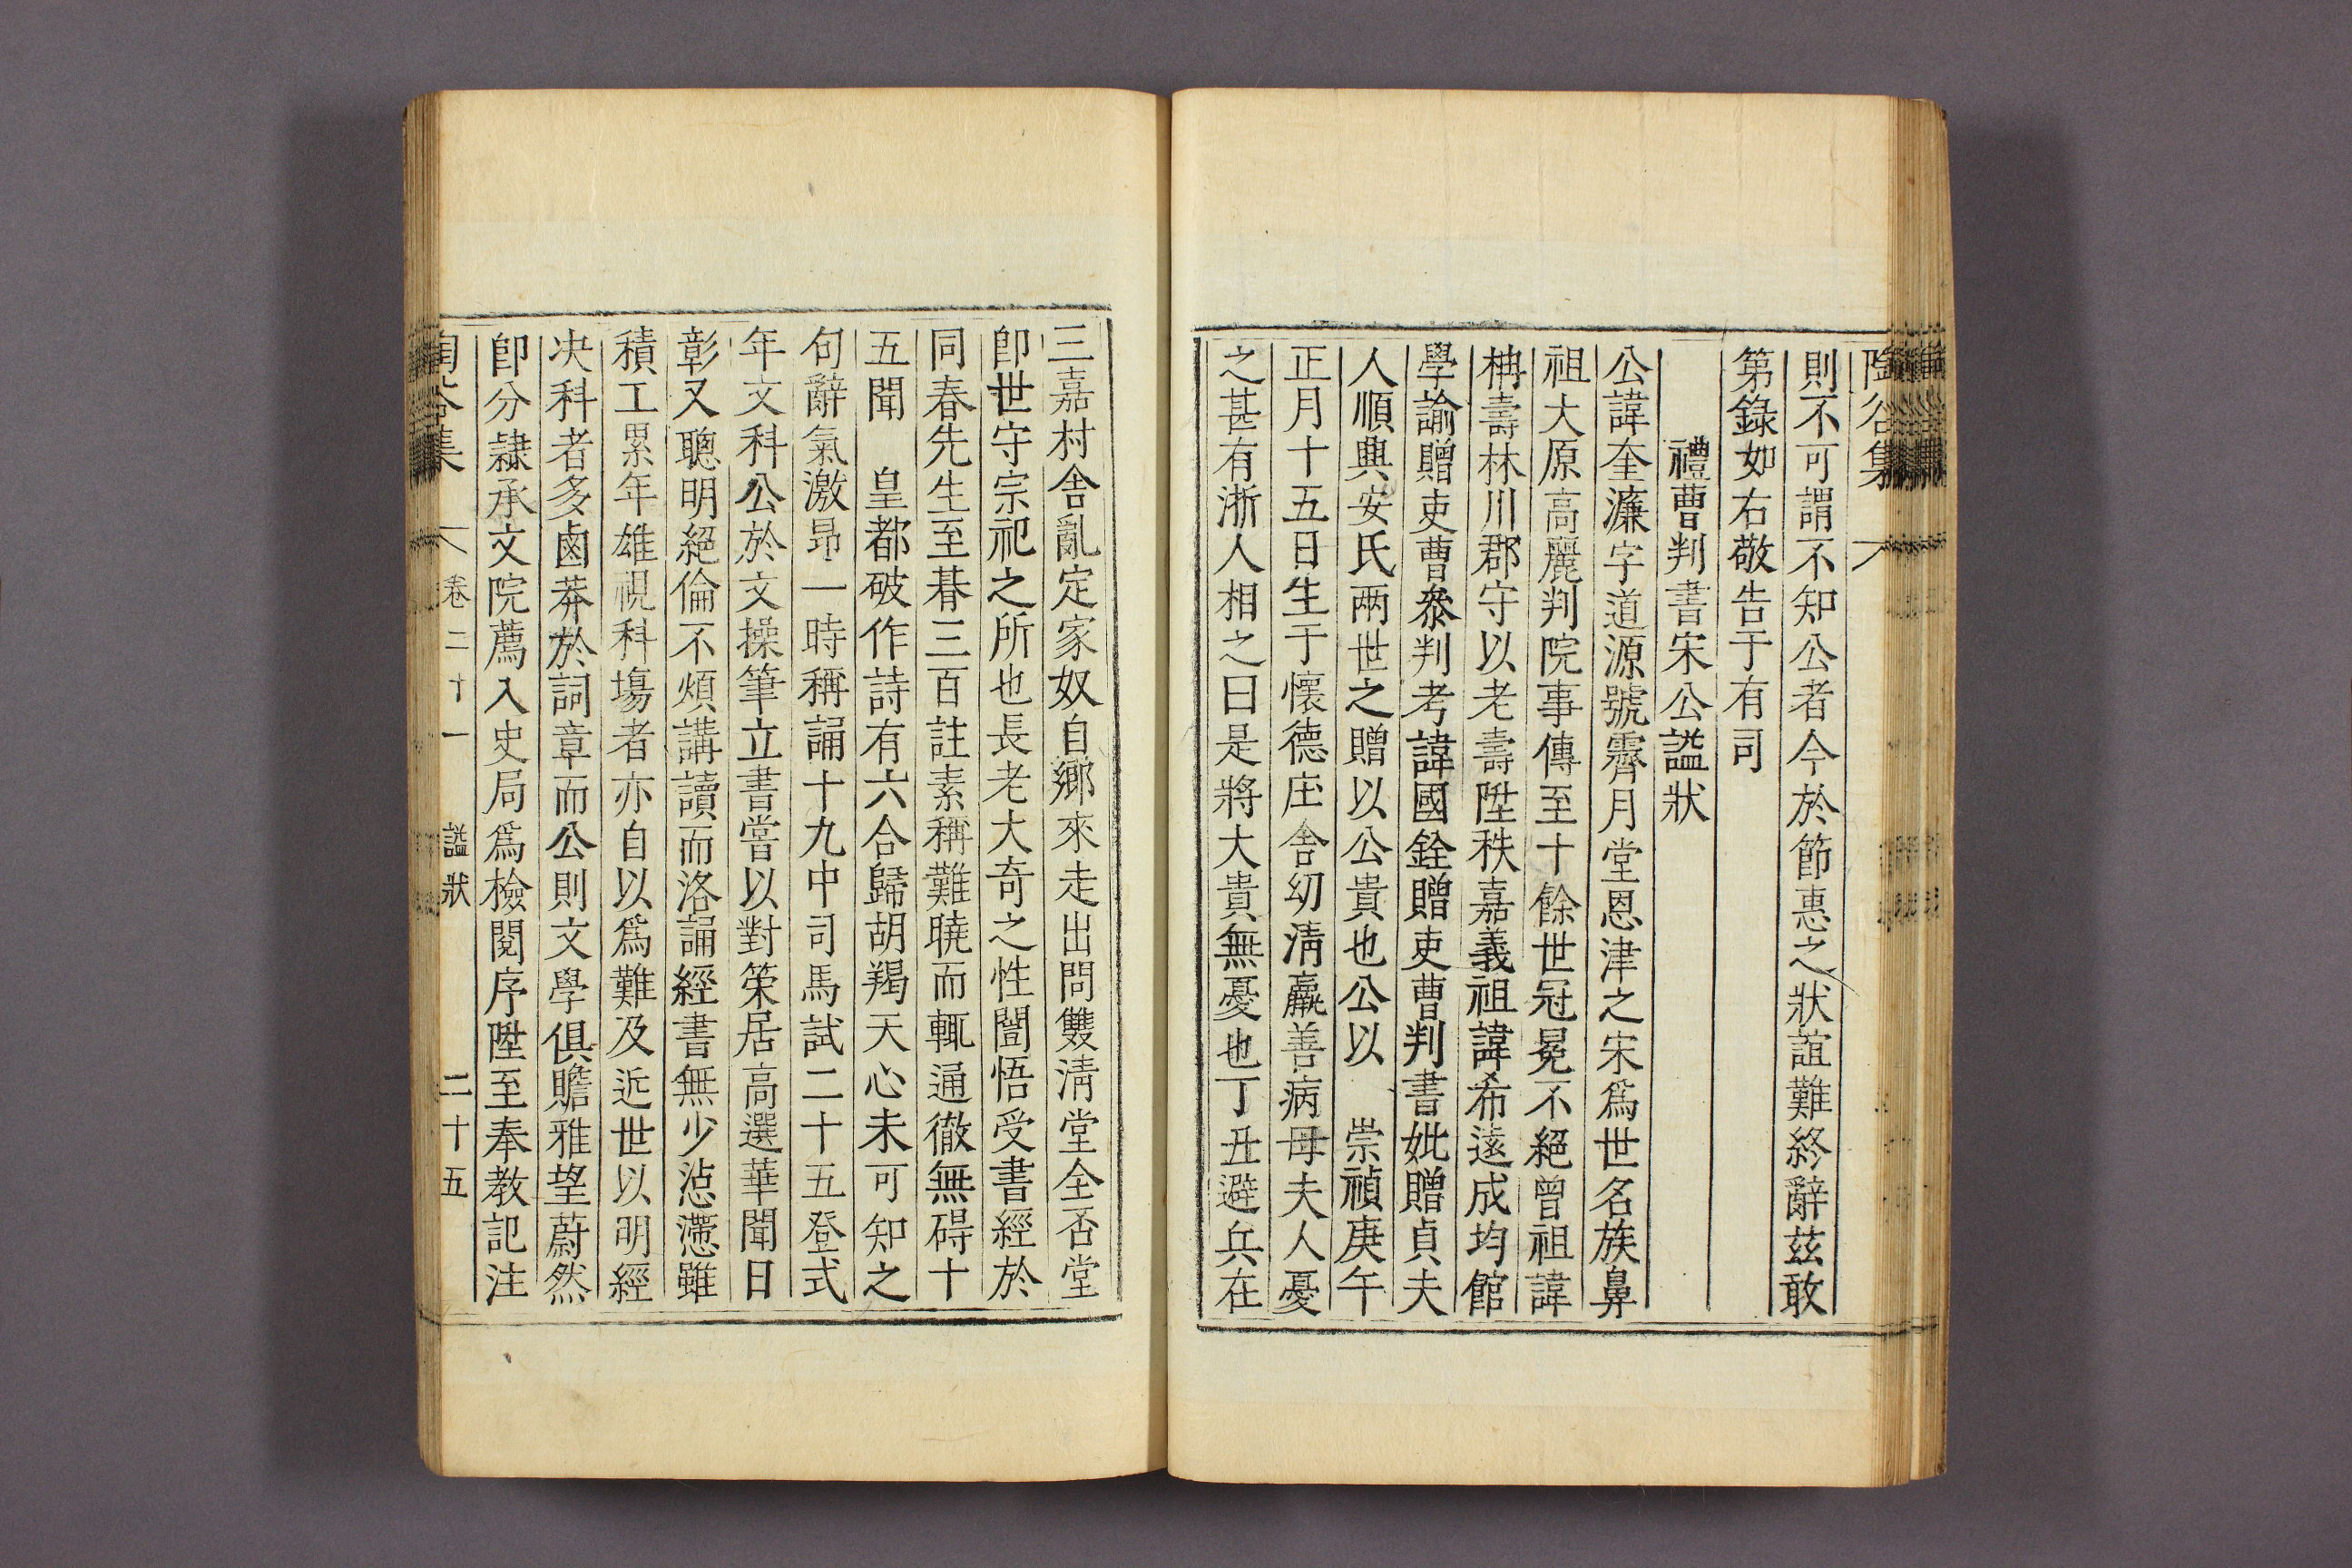 陶谷集
則不可謂不知公者今於節惠之狀誼難終辭玆敢
第錄如右敬告于有司
禮曹判書宋公謚狀
公諱奎濂字道源號霽月堂恩津之宋爲世名族鼻
祖大原高麗判院事傳至十餘世冠冕不絕曾祖諱
柟壽林川郡守以老壽陞秩嘉義祖諱希遠成均館
學諭贈吏曹叅判考諱國銓贈吏曹判書妣贈貞夫
人順興安氏兩世之贈以公貴也公以 崇禎庚午
正月十五日生于懷德庄舍幼淸羸善病母夫人憂
之甚有浙人相之曰是將大貴無憂也丁丑避兵在
三嘉村舍亂定家奴自鄉來走出問雙淸堂全否堂
卽世守宗祀之所也長老大奇之性闓悟受書經於
同春先生至朞三百註素稱難曉而輒通徹無碍十
五聞 皇都破作詩有六合歸胡羯天心未可知之
句辭氣激昂一時稱誦十九中司馬試二十五登式
年文科公於文操筆立書嘗以對策居高選華聞日
彰又聰明絕倫不煩講讀而洛誦經書無少惉懘雖
積工累年雄視科場者亦自以爲難及近世以明經
决科者多鹵莽於詞章而公則文學俱贍雅望蔚然
卽分隷承文院薦入史局爲檢閱序陞至奉敎記注
陶谷集 卷二十一 謚狀 二十五